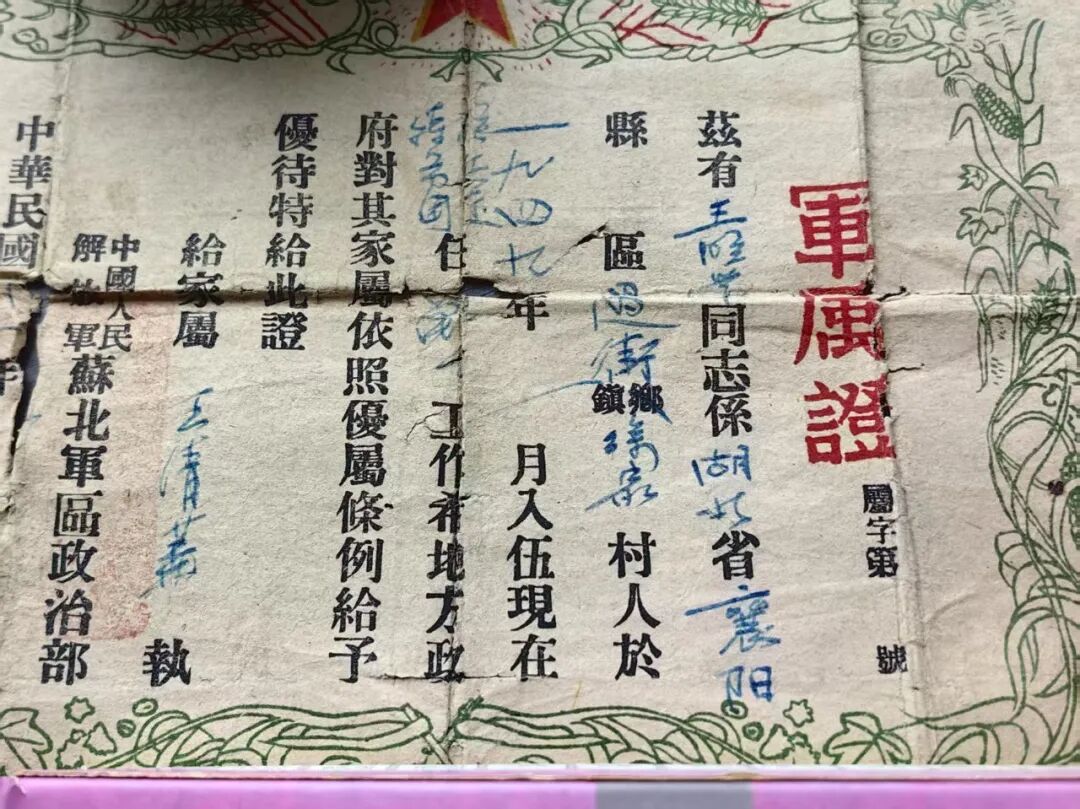 軍属證
屬字第 號
茲有王明
同志係湖北省襄阳
縣 區过街鄉鎮 村人於
一九四九年 月入伍現在
任 工作希地方政
府對其家屬依照優屬條例給予
優待特給此證
給家屬 王清 執
中國人民解放軍蘇北軍區政治部
中華民國 年